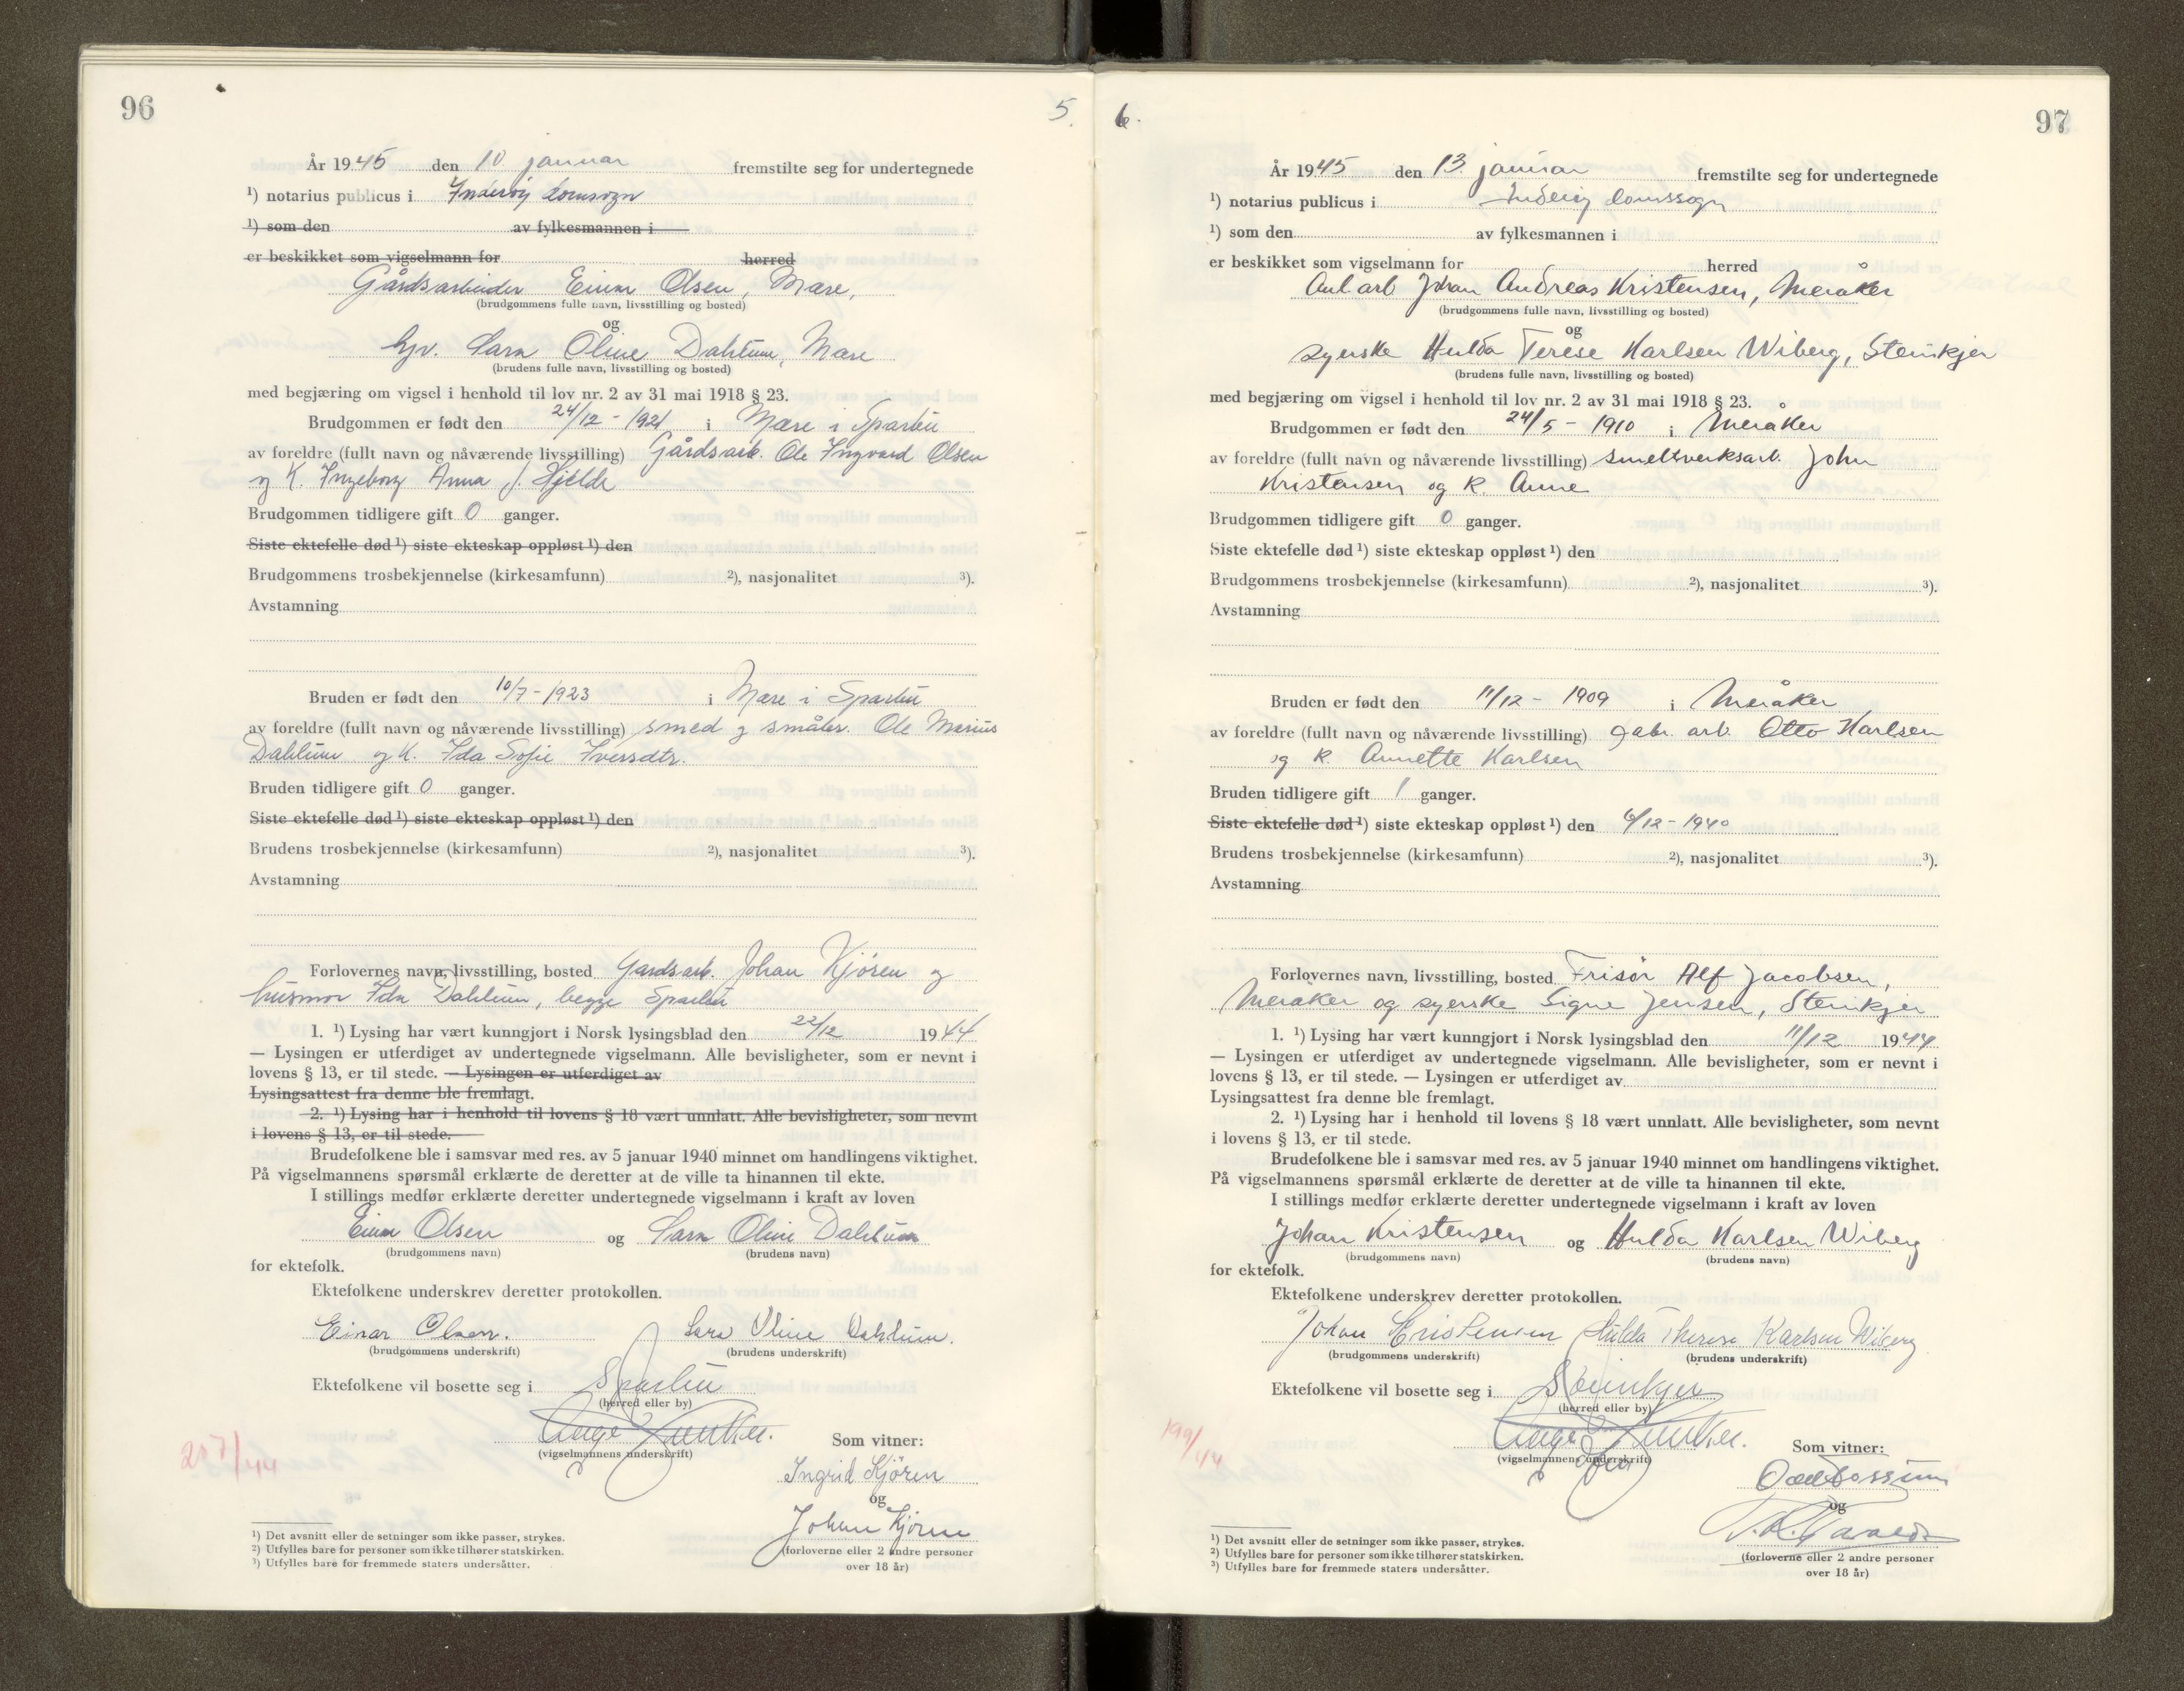 96
5.
År 1945 den 10 januar fremstilte seg for undertegnede
¹) notarius publicus i Inderøy domsogn
¹) som den av fylkesmannen i
er beskikket som vigselmann for herred
Gårdsarbeider Einar Olsen, Mære,
(brudgommens fulle navn, livsstilling og bosted)
og
hjv. Sara Oline Dahlum, Mære
(brudens fulle navn, livsstilling og bosted)
med begjæring om vigsel i henhold til lov nr. 2 av 31 mai 1918 § 23.
Brudgommen er født den 24/12 - 1921 i Mære i Sparbu
av foreldre (fullt navn og nåværende livsstilling) Gårdsarb. Ole Ingvard Olsen
og K. Ingeborg Anna f. Hjelde
Brudgommen tidligere gift 0 ganger.
Siste ektefelle død ¹) siste ekteskap oppløst ¹) den
Brudgommens trosbekjennelse (kirkesamfunn) ²), nasjonalitet ³).
Avstamning
Bruden er født den 10/7 - 1923 i Mære i Sparbu
av foreldre (fullt navn og nåværende livsstilling) smed og småbr. Ole Marius
Dahlum og K. Ida Sofie Iversdtr.
Bruden tidligere gift 0 ganger.
Siste ektefelle død ¹) siste ekteskap oppløst ¹) den
Brudens trosbekjennelse (kirkesamfunn) ²), nasjonalitet ³).
Avstamning
Forlovernes navn, livsstilling, bosted Gardsarb. Johan Kjøren og
husmor Ida Dahlum, begge Sparbu
1. ¹) Lysing har vært kunngjort i Norsk lysingsblad den 22/12 1944
— Lysingen er utferdiget av undertegnede vigselmann. Alle bevisligheter, som er nevnt i
lovens § 13, er til stede. — Lysingen er utferdiget av
Lysingsattest fra denne ble fremlagt.
2. ¹) Lysing har i henhold til lovens § 18 vært unnlatt. Alle bevisligheter, som nevnt
i lovens § 13, er til stede.
Brudefolkene ble i samsvar med res. av 5 januar 1940 minnet om handlingens viktighet.
På vigselmannens spørsmål erklærte de deretter at de ville ta hinannen til ekte.
I stillings medfør erklærte deretter undertegnede vigselmann i kraft av loven
Einar Olsen og Sara Oline Dahlum
(brudgommens navn) (brudens navn)
for ektefolk.
Ektefolkene underskrev deretter protokollen.
Einar Olsen. Sara Oline Dahlum.
(brudgommens underskrift) (brudens underskrift)
Ektefolkene vil bosette seg i Sparbu
(herred eller by)
(vigselmannens underskrift)
207/44
Som vitner:
Ingrid Kjøren
og
Johan Kjøren
(forloverne eller 2 andre personer
over 18 år)
¹) Det avsnitt eller de setninger som ikke passer, strykes.
²) Utfylles bare for personer som ikke tilhører statskirken.
³) Utfylles bare for fremmede staters undersåtter.
6.
97
År 1945 den 13. januar fremstilte seg for undertegnede
¹) notarius publicus i Inderøy domssogn
¹) som den av fylkesmannen i
er beskikket som vigselmann for herred
Anl. arb Johan Andreas Kristensen, Meråker
(brudgommens fulle navn, livsstilling og bosted)
og
syerske Hulda Terese Karlsen Wiberg, Steinkjer
(brudens fulle navn, livsstilling og bosted)
med begjæring om vigsel i henhold til lov nr. 2 av 31 mai 1918 § 23.
Brudgommen er født den 24/5 - 1910 i Meråker
av foreldre (fullt navn og nåværende livsstilling) smeltverksarb. John
Kristensen og K. Anne
Brudgommen tidligere gift 0 ganger.
Siste ektefelle død ¹) siste ekteskap oppløst ¹) den
Brudgommens trosbekjennelse (kirkesamfunn) ²), nasjonalitet ³).
Avstamning
Bruden er født den 11/12 - 1909 i Meråker
av foreldre (fullt navn og nåværende livsstilling) arb. Otto Karlsen
og K. Annette Karlsen
Bruden tidligere gift 1 ganger.
Siste ektefelle død ¹) siste ekteskap oppløst ¹) den 6/12 - 1940
Brudens trosbekjennelse (kirkesamfunn) ²), nasjonalitet ³).
Avstamning
Forlovernes navn, livsstilling, bosted Frisør Alf Jacobsen,
Meråker og syerske Signe Jensen, Steinkjer
1. ¹) Lysing har vært kunngjort i Norsk lysingsblad den 11/12 1944
— Lysingen er utferdiget av undertegnede vigselmann. Alle bevisligheter, som er nevnt i
lovens § 13, er til stede. — Lysingen er utferdiget av
Lysingsattest fra denne ble fremlagt.
2. ¹) Lysing har i henhold til lovens § 18 vært unnlatt. Alle bevisligheter, som nevnt
i lovens § 13, er til stede.
Brudefolkene ble i samsvar med res. av 5 januar 1940 minnet om handlingens viktighet.
På vigselmannens spørsmål erklærte de deretter at de ville ta hinannen til ekte.
I stillings medfør erklærte deretter undertegnede vigselmann i kraft av loven
Johan Kristensen og Hulda Karlsen Wiberg
(brudgommens navn) (brudens navn)
for ektefolk.
Ektefolkene underskrev deretter protokollen.
Johan Kristensen Hulda Therese Karlsen Wiberg
(brudgommens underskrift) (brudens underskrift)
Ektefolkene vil bosette seg i Steinkjer
(herred eller by)
(vigselmannens underskrift)
199/44
Som vitner:
Odd Fossum
og
(forloverne eller 2 andre personer
over 18 år)
¹) Det avsnitt eller de setninger som ikke passer, strykes.
²) Utfylles bare for personer som ikke tilhører statskirken.
³) Utfylles bare for fremmede staters undersåtter.